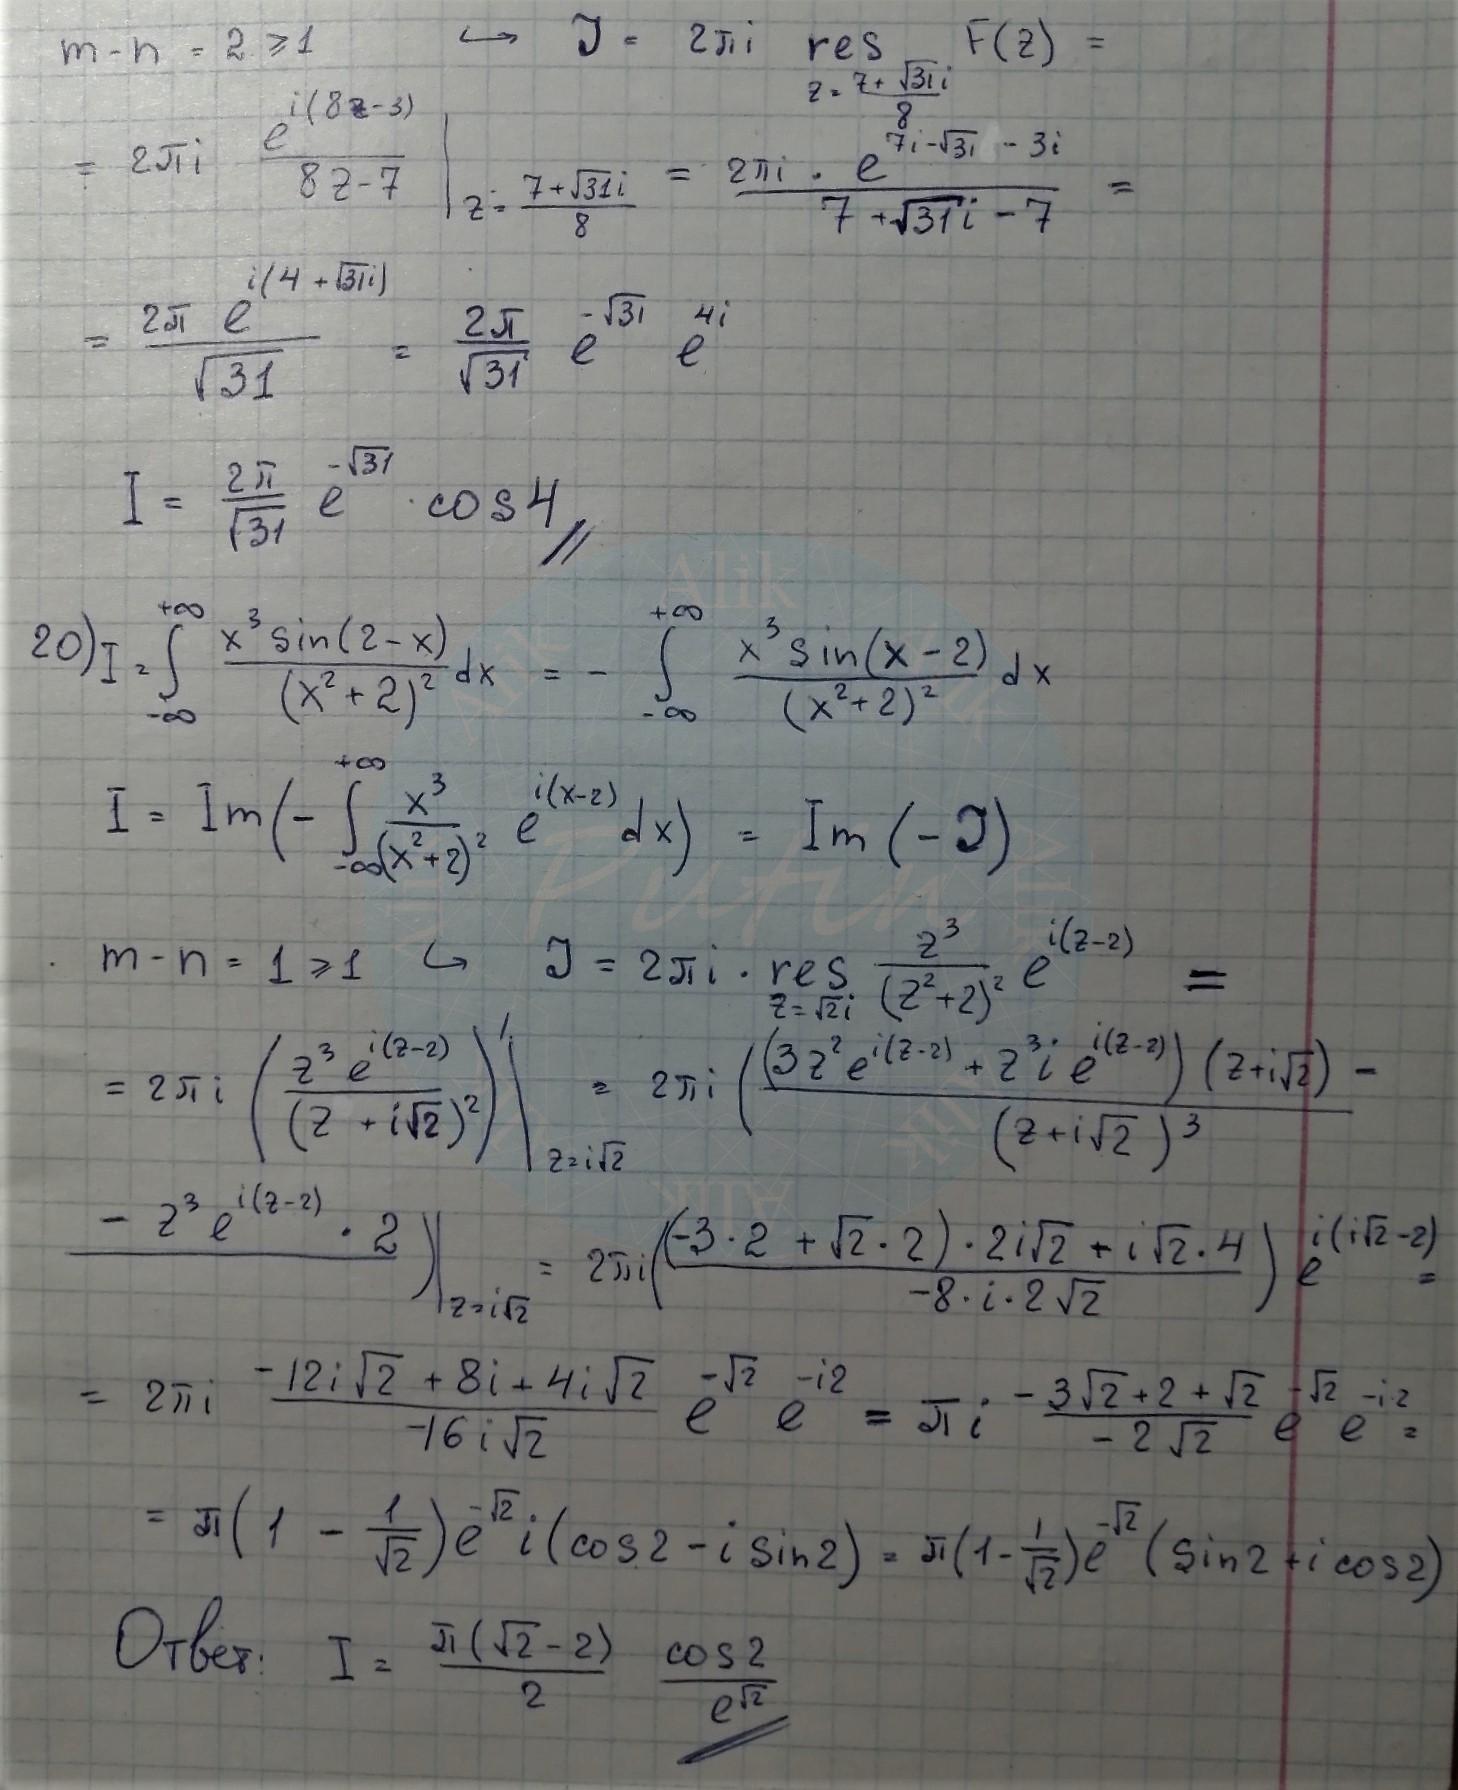 m - n = 2 ⩾ 1 ↪ J = 2πi res F(z) =
z = (7 + √31 i)/8
= 2πi e^{i(8z-3)}/(8z - 7) |_{z = (7 + √31 i)/8} = (2πi · e^{7i - √31 - 3i})/(7 + √31 i - 7) =
= (2π e^{i(4 + √31 i)})/√31 = 2π/√31 e^{-√31} e^{4i}
I = 2π/√31 e^{-√31} · cos 4 //
20) I = ∫_{-∞}^{+∞} (x³ sin(2 - x))/(x² + 2)² dx = - ∫_{-∞}^{+∞} (x³ sin(x - 2))/(x² + 2)² dx
I = Im (- ∫_{-∞}^{+∞} x³/(x² + 2)² e^{i(x-2)} dx) = Im (- J)
m - n = 1 ⩾ 1 ↪ J = 2πi · res_{z = √2 i} z³/(z² + 2)² e^{i(z-2)} =
= 2πi (z³ e^{i(z-2)}/(z + i√2)²)' |_{z = i√2} = 2πi ((3z² e^{i(z-2)} + z³ i e^{i(z-2)}) (z + i√2) -/(z + i√2)³
- z³ e^{i(z-2)} · 2) |_{z = i√2} = 2πi (((-3·2 + √2·2) · 2i√2 + i√2·4)/(-8·i·2√2)) e^{i(i√2-2)} =
= 2πi (-12i√2 + 8i + 4i√2)/(-16i√2) e^{-√2} e^{-i2} = πi (-3√2 + 2 + √2)/(-2√2) e^{-√2} e^{-i2} =
= π(1 - 1/√2) e^{-√2} i (cos2 - i sin2) = π(1 - 1/√2) e^{-√2} (sin2 + i cos2)
Ответ: I = π(√2 - 2)/2 cos2/e^{√2}
Alik
Putin